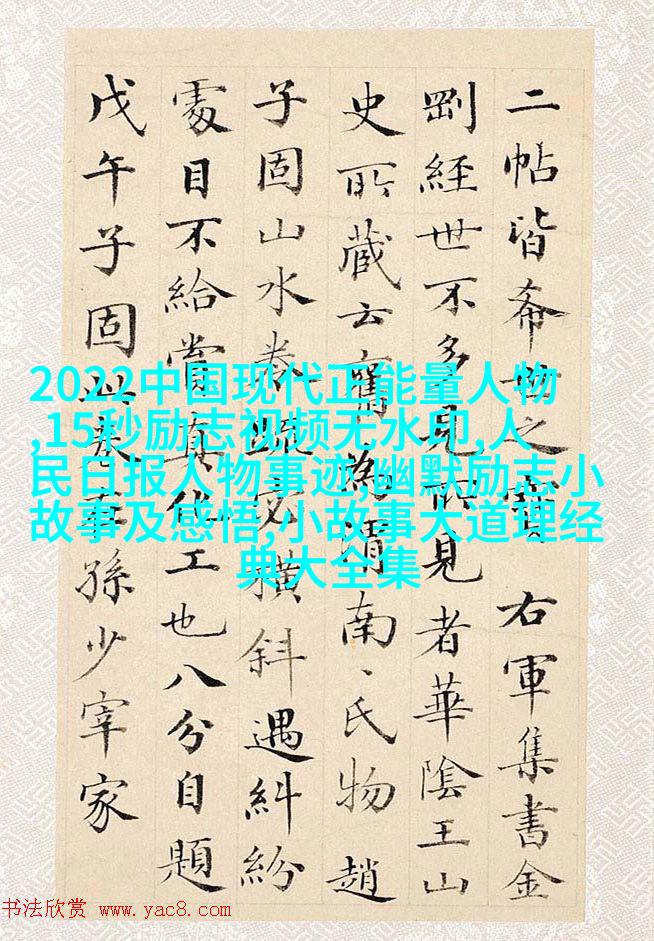 二帖皆希世之寶 右軍集書金
剛經世不多見所見者華陰王山
史所藏云舊為渭南、氏物趙
子固山水卷疏密橫斜遇糾紛
處目不給賞真化工也八分自題
戊午子固此卷在孫少宰家
2022中国现代正能量人物
,15秒励志视频无水印,人
民日报人物事迹,幽默励志小
故事及感悟,小故事大道理经
典大全集
书法欣赏 www.yac8.com